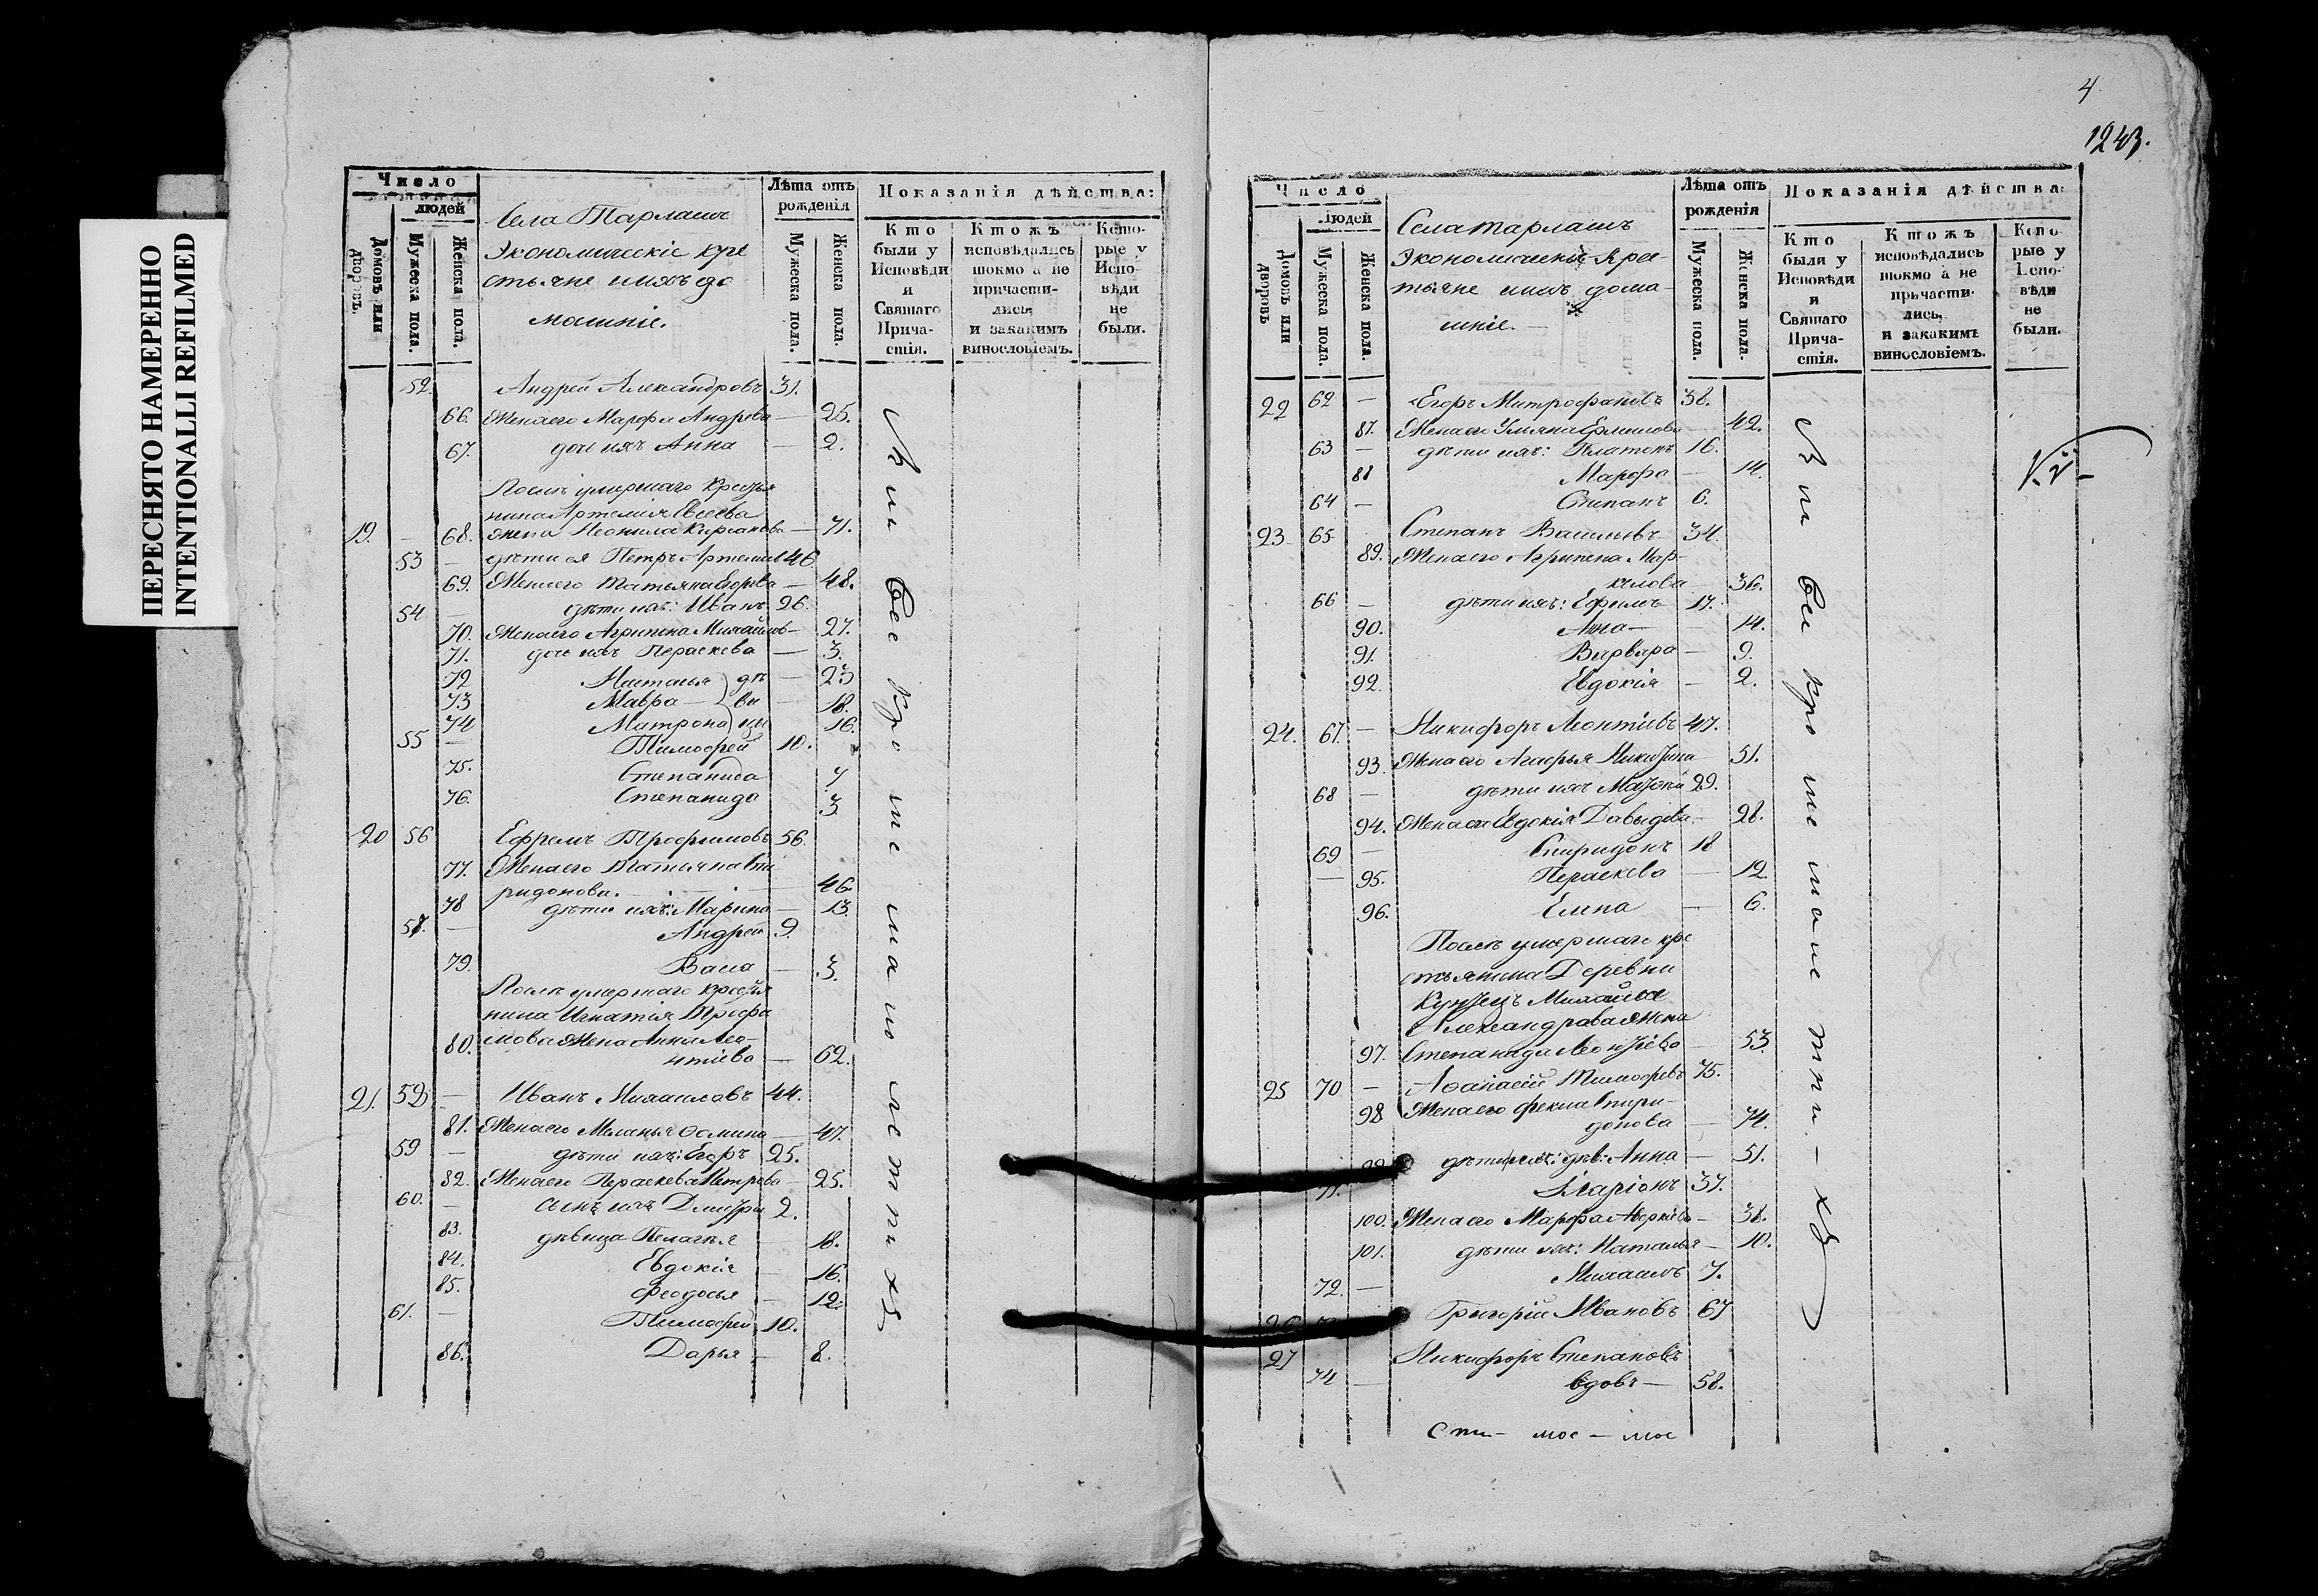 ПЕРЕСНЯТО НАМЕРЕННО
INTENTIONALLI REFILMED
Число
людей
Домовъ или дворовъ.
Мужеска пола.
Женска пола.
Села Тарлашъ
Экономическіе кре
стьяне и ихъ до
машніе.
Лѣта отъ рожденія
Мужеска пола.
Женска пола.
Показанія дѣйства:
Кто были у Исповѣди и Святаго Прича- стія.
Ктожъ исповѣдались токмо а не причасти- лись, и закакимъ винословіемъ.
Кото- рые у Испо- вѣди не были.
52. Андрей Александровъ 31.
66. Жена его Марфа Андрѣва — 25.
67. дочь ихъ Анна — 2.
Послѣ умершаго кресть
нина Артемія Евсеева
19. — 68. жена Неонила Кирианова — 71.
53 — дѣти ея Петръ Артемьевъ 46
69. Жена его Татьяна Егорова — 48.
54 — дѣти ихъ: Иванъ 26.
70. Жена его Агрипена Михайлов — 27.
71. дочь ихъ Пераскева — 3.
72 Наталья дѣ — 23
73 Мавра — ви — 18.
74 Матрона цы 16.
55 — Тимофей 10.
75. Степанида 7
76. Степанида 3.
20 56 Ефремъ Трофимовъ 56.
77. Жена его Татьяна Спи
ридонова. — 46.
78 дѣти ихъ: Марина — 13.
57. — Андрей 9.
79. Васса — 3.
Послѣ умершаго крестья
нина Игнатія Трофи
80. мова Жена Анна Лео-
нтіева — 62.
21. 58 — Иванъ Михаиловъ 44.
81. Жена его Меланья Осипина — 47.
59 — дѣти ихъ: Егоръ 25.
82. Жена его Пераскева Петрова — 25.
60. — сынъ ихъ Дмитри 2.
83. дѣвица Пелагѣя 18.
84. Евдокія — 16.
85. Феодосья — 12.
61. — Тимофей 10.
86. Дарья — 8.
4
1243.
Число
людей
Домовъ или дворовъ
Мужеска пола.
Женска пола.
Села Тарлашъ
Экономическіе кре-
стьяне и ихъ дома-
шніе. —
Лѣта отъ рожденія
Мужеска пола.
Женска пола.
Показанія дѣйства:
Кто были у Исповѣди и Святаго Прича- стія.
Ктожъ исповѣдались токмо а не причасти- лись, и закакимъ винословіемъ.
Кото рые у Испо- вѣди не были.
22 62 — Егоръ Митрофановъ 38.
87. Жена его Ульяна Ермилова — 42.
63 — дѣти ихъ: Платонъ 16.
88 Марфа — 14.
64 — Степанъ 6.
23 65 Степанъ Васильевъ 34.
89. Жена его Агрипена Мар-
келова 36.
66 — дѣти ихъ: Ефимъ 17.
90. Анна — 14.
91. Варвара — 9.
92. Евдокія — 2.
24. 67. — Никифоръ Леонтіевъ 47.
93. Жена его Агафья Никитина 51.
68 — дѣти ихъ Матвѣй 29.
94. Жена его Евдокія Давыдова — 28.
69 — Спиридонъ 18
— 95. Пераскева — 12.
96. Елена — 6.
Послѣ умершаго кре
стьянина Деревни
Михайла
Александрова Жена
97. Степанида Леонтіева — 53.
25 70 — Афанасій Тимофѣевъ 75.
98 Жена его Фекла Спири-
донова — 74.
99. дѣти ихъ: дѣв: Анна — 51.
71. Иларіонъ 37.
100. Жена его Марфа Аверкіева — 38.
101. дѣти ихъ: Наталья — 10.
72. — Михаилъ 7.
26 73 Григорій Ивановъ 67
27 Никифоръ Степановъ
74 — вдовъ — 58.